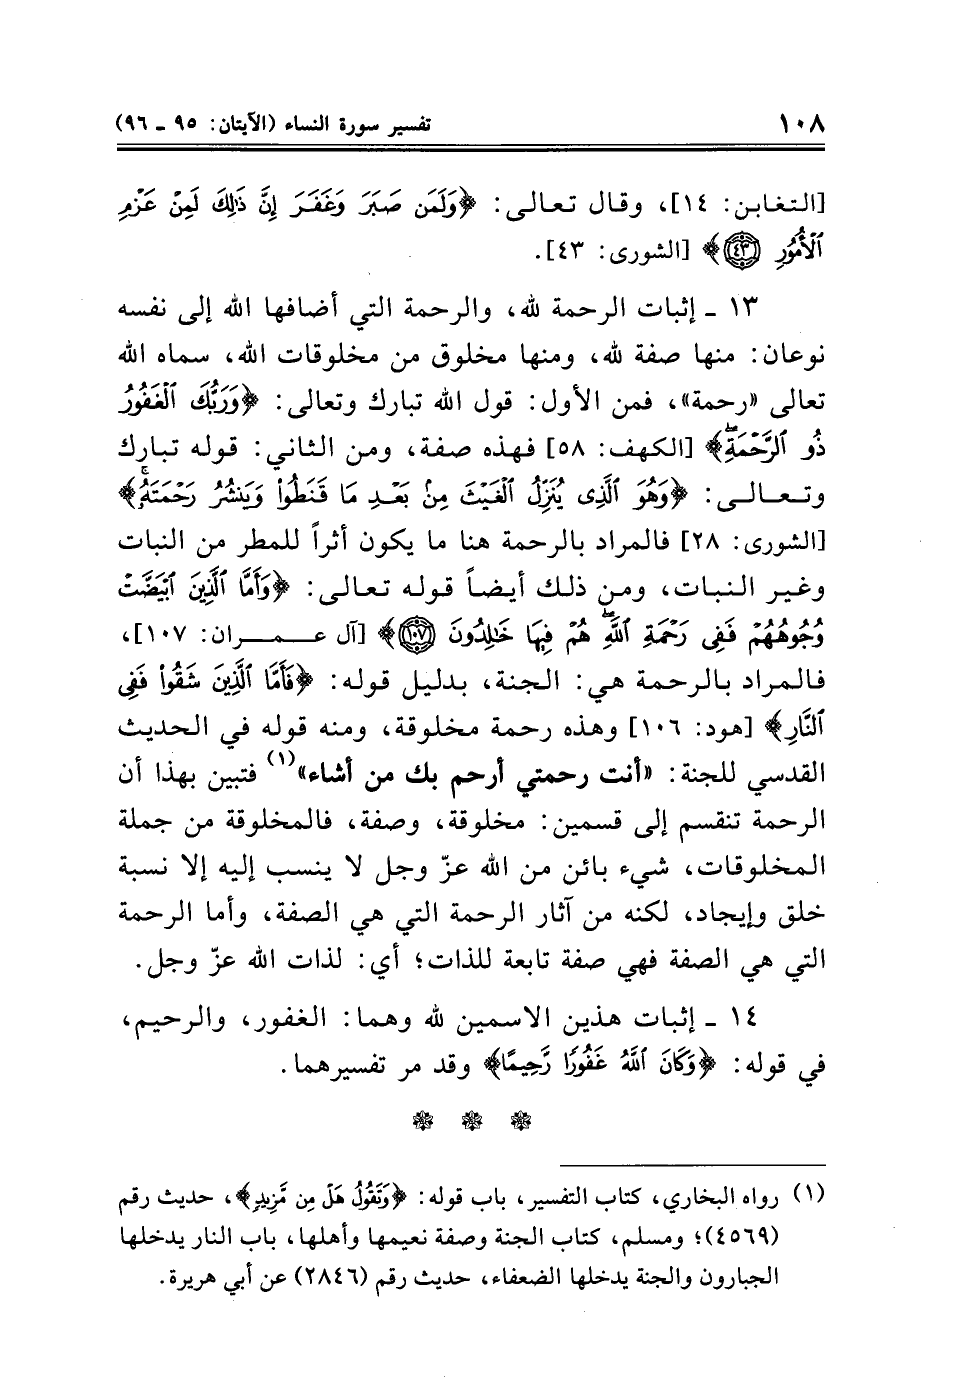 ١٠٨ تفسير سورة النساء (الآيتان: ٩٥ ـ ٩٦)
[التغابن: ١٤]، وقال تعالى: ﴿وَلَمَن صَبَرَ وَغَفَرَ إِنَّ ذَٰلِكَ لَمِنْ عَزْمِ
ٱلْأُمُورِ ٤٣﴾ [الشورى: ٤٣].
١٣ ـ إثبات الرحمة لله، والرحمة التي أضافها الله إلى نفسه
نوعان: منها صفة لله، ومنها مخلوق من مخلوقات الله، سماه الله
تعالى «رحمة»، فمن الأول: قول الله تبارك وتعالى: ﴿وَرَبُّكَ ٱلْغَفُورُ
ذُو ٱلرَّحْمَةِۖ﴾ [الكهف: ٥٨] فهذه صفة، ومن الثاني: قوله تبارك
وتعالى: ﴿وَهُوَ ٱلَّذِى يُنَزِّلُ ٱلْغَيْثَ مِنۢ بَعْدِ مَا قَنَطُوا۟ وَيَنشُرُ رَحْمَتَهُۥۚ﴾
[الشورى: ٢٨] فالمراد بالرحمة هنا ما يكون أثراً للمطر من النبات
وغير النبات، ومن ذلك أيضاً قوله تعالى: ﴿وَأَمَّا ٱلَّذِينَ ٱبْيَضَّتْ
وُجُوهُهُمْ فَفِى رَحْمَةِ ٱللَّهِۖ هُمْ فِيهَا خَٰلِدُونَ ١٠٧﴾ [آل عمران: ١٠٧]،
فالمراد بالرحمة هي: الجنة، بدليل قوله: ﴿فَأَمَّا ٱلَّذِينَ شَقُوا۟ فَفِى
ٱلنَّارِ﴾ [هود: ١٠٦] وهذه رحمة مخلوقة، ومنه قوله في الحديث
القدسي للجنة: «أنت رحمتي أرحم بك من أشاء»(١) فتبين بهذا أن
الرحمة تنقسم إلى قسمين: مخلوقة، وصفة، فالمخلوقة من جملة
المخلوقات، شيء بائن من الله عزّ وجل لا ينسب إليه إلا نسبة
خلق وإيجاد، لكنه من آثار الرحمة التي هي الصفة، وأما الرحمة
التي هي الصفة فهي صفة تابعة للذات؛ أي: لذات الله عزّ وجل.
١٤ ـ إثبات هذين الاسمين لله وهما: الغفور، والرحيم،
في قوله: ﴿وَكَانَ ٱللَّهُ غَفُورًا رَّحِيمًا﴾ وقد مر تفسيرهما.
(١) رواه البخاري، كتاب التفسير، باب قوله: ﴿وَتَقُولُ هَلْ مِن مَّزِيدٍ﴾، حديث رقم
(٤٥٦٩)؛ ومسلم، كتاب الجنة وصفة نعيمها وأهلها، باب النار يدخلها
الجبارون والجنة يدخلها الضعفاء، حديث رقم (٢٨٤٦) عن أبي هريرة.